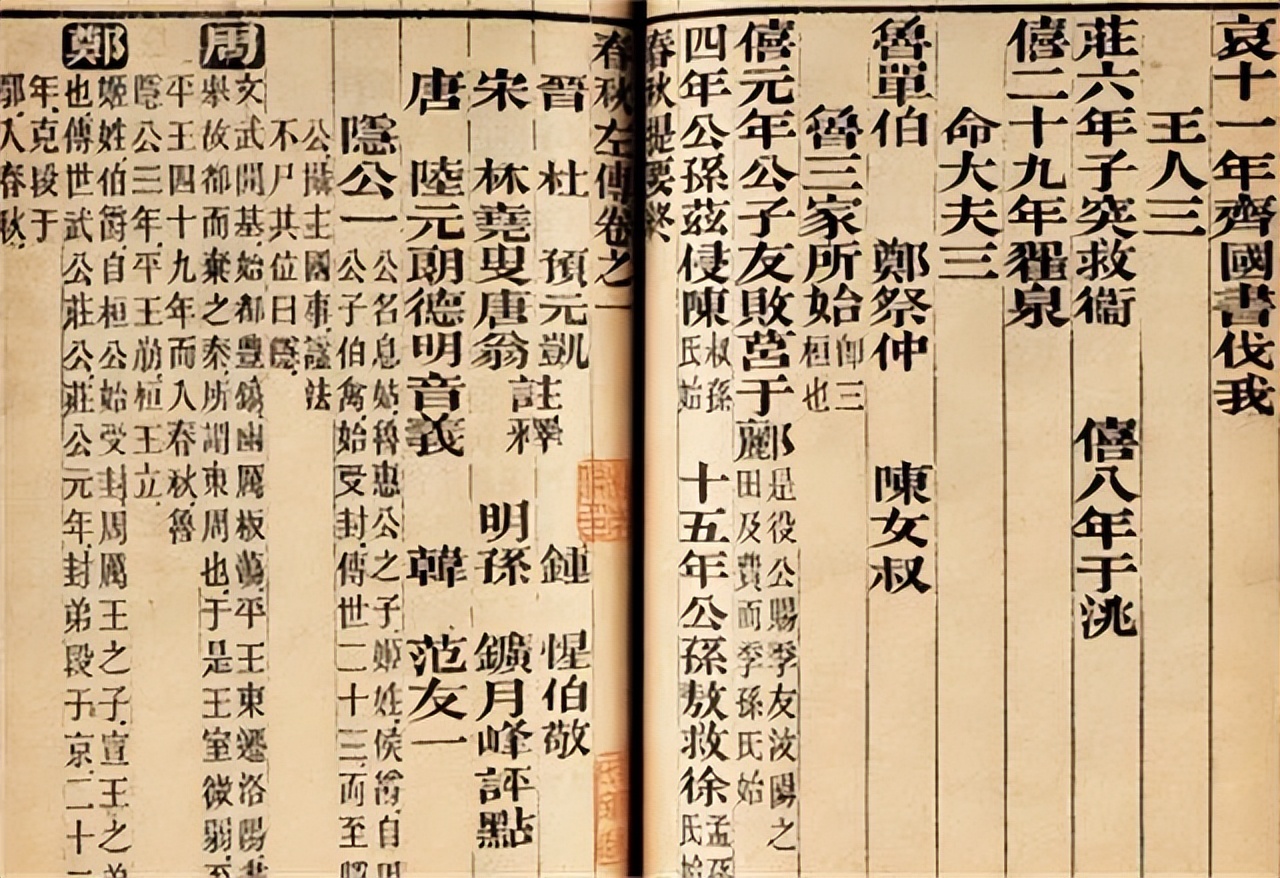 哀十一年齊國書伐我
王人三
莊六年子突救衞　僖八年于洮
僖二十九年翟泉
命大夫三
魯單伯　鄭祭仲　陳女叔
魯三家所始卽三桓也
僖元年公子友敗莒于酈卽是役公賜季友汶陽之田及費而季孫氏始
四年公孫茲侵陳叔孫氏始　十五年公孫敖救徐孟孫氏始
春秋提要終
春秋左傳卷之一
晉　杜　預元凱　註釋　鍾　惺伯敬
宋　林堯叟唐翁　明孫　鑛月峰評點
唐　陸元朗德明音義　韓　范友一
隱公一　公名息姑魯惠公之子姬姓侯爵自
公子伯禽始受封傳世二十三而至
公攝主國事諡法
不尸其位曰隱
周　文武開基始都豐鎬幽厲板蕩平王東遷洛陽
舉故都而棄之秦所謂東周也于是王室微弱至
平王四十九年而入春秋魯
隱公三年平王崩桓王立
鄭　姬姓伯爵自桓公始受封周厲王之子宣王之弟
也傳世武公莊公莊公元年封弟段于京二十二
年克段于
鄢入春秋